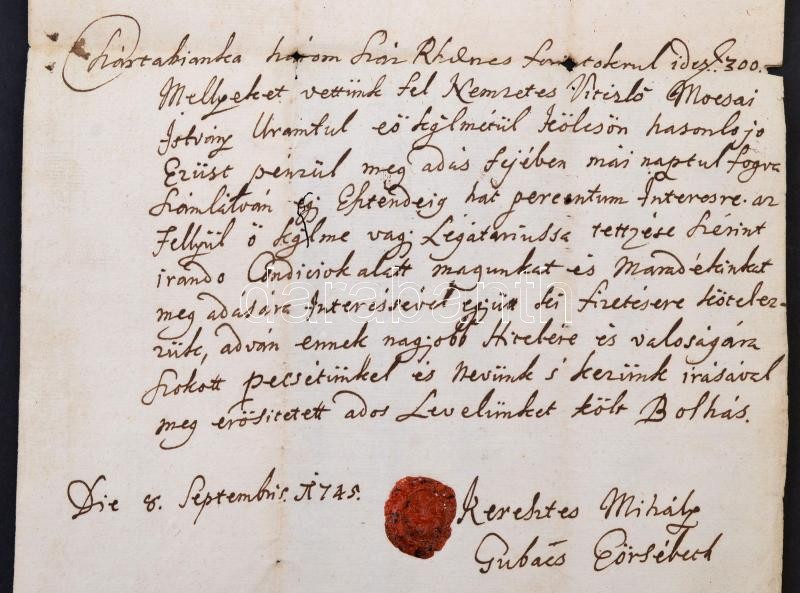 Kártabianka három száz Rhénes forintokrul idest f 300.
Mellyeket vettünk fel Nemzetes Vitézlö Mocsai
István Uramtul eö kglmétül kölcsön hasonlo jo
Ezüst pénzül meg adás fejében mái naptul fogva
számlálván egj Esztendeig hat percentum Interesre. az
Fellyül ö kglme vagj Légatariussa tettzése szérint
irando Condiciok alatt magunkat és Maradékinkat
meg adására Interessével együtt ki fizetésere kötelez-
zük, advan ennek nagjobb Hitelére és valoságára
szokott pecsétünkel és Nevünk s' kezünk irásával
meg erösitetett ados Levelünket költ Bolhás.
Die 8. Septembris. A 1745.
Keresztes Mihály
Gubács Eörsébeth
darabanth